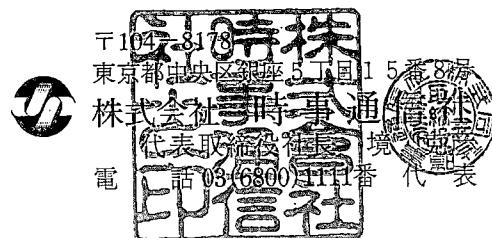 〒104-8178
東京都中央区銀座5丁目15番8号
株式会社 時事通信社
代表取締役社長 境
電 話 03(6800)1111番 代 表
株式会社時事通信社之印